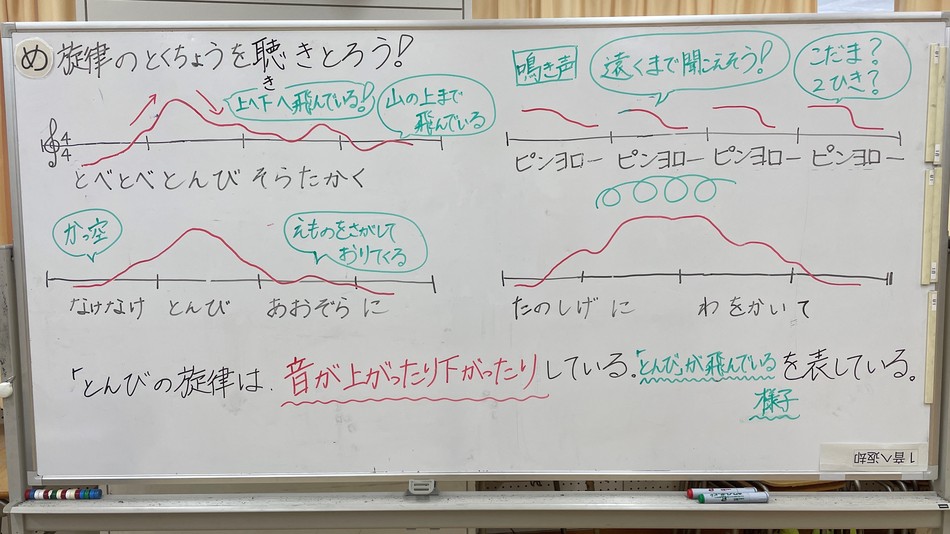 め 旋律のとくちょうを聴きとろう!
き
上へ下へ飛んでいる!
山の上まで
飛んでいる
4
4
とべとべとんび そらたかく
鳴き声
遠くまで聞こえそう!
こだま?
2ひき?
ピンヨロー ピンヨロー ピンヨロー ピンヨロー
えものをさがして
おりてくる
なけなけ とんび あおぞら に
たのしげ に わ をかい て
「とんびの旋律は、音が上がったり下がったりしている。「とんび」が飛んでいるを表している。
様子
1音へ返却